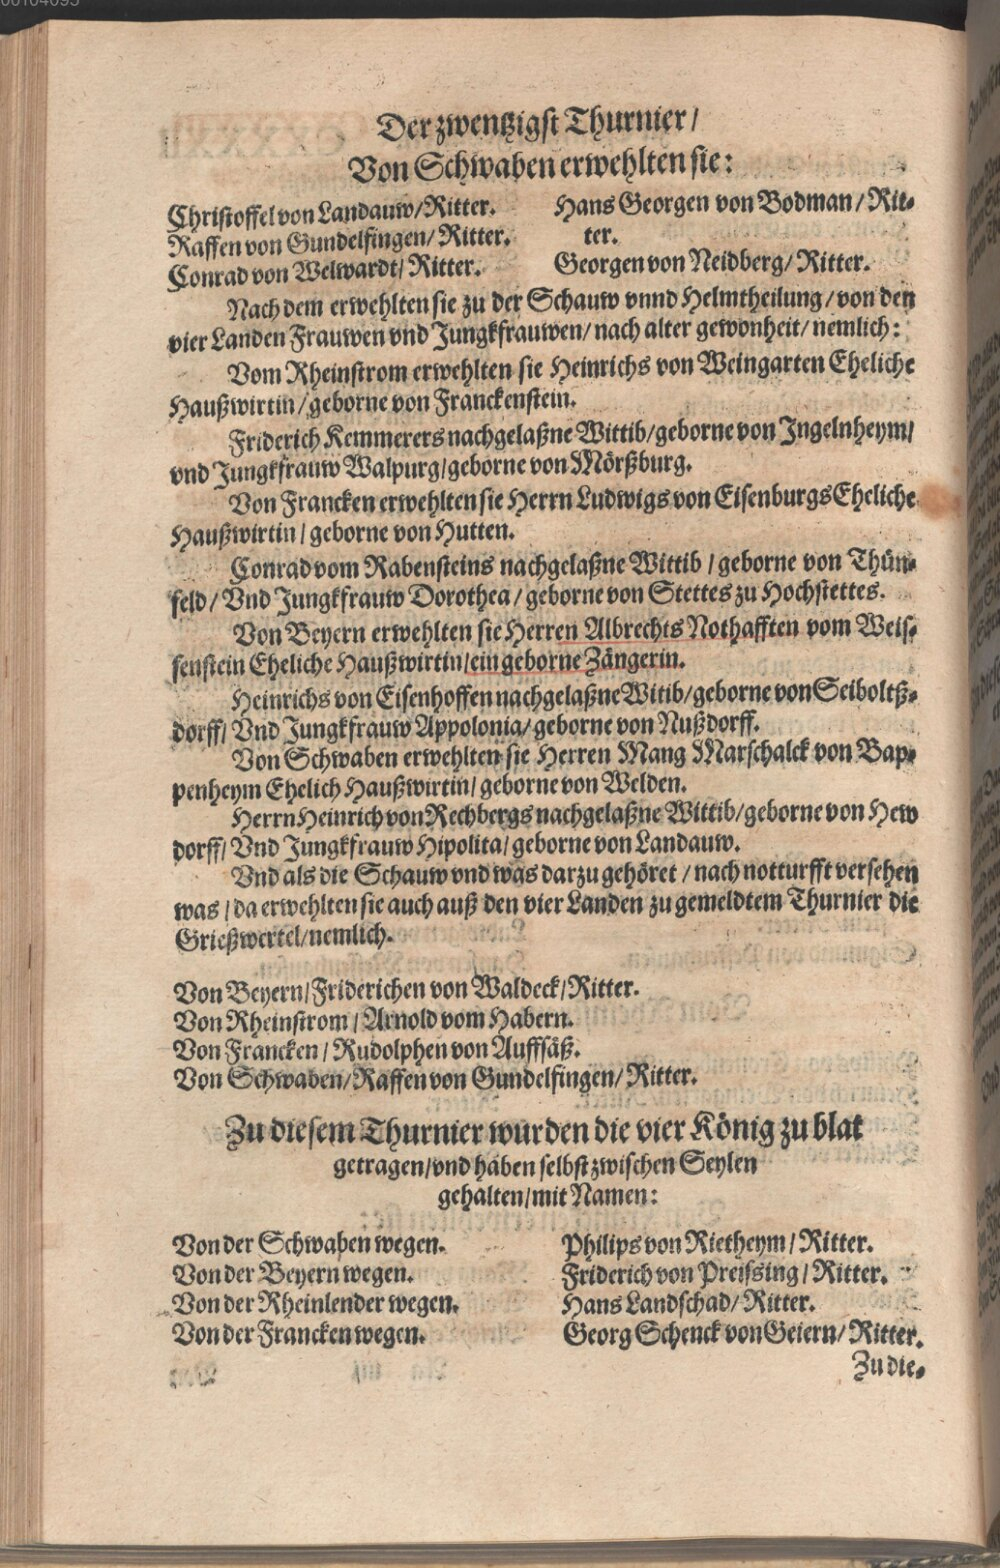 00104095
Der zwentzigst Thurnier/
Von Schwaben erwehlten sie:
Christoffel von Landauw/Ritter.
Raffen von Gundelfingen/Ritter.
Conrad von Welwardt/Ritter.
Hans Georgen von Bodman/Rit-
ter.
Georgen von Neidberg/Ritter.
Nach dem erwehlten sie zu der Schauw vnnd Helmtheilung/von den
vier Landen Frauwen vnd Jungkfrauwen/nach alter gewonheit/nemlich:
Vom Rheinstrom erwehlten sie Heinrichs von Weingarten Eheliche
Haußwirtin/geborne von Franckenstein.
Friderich Kemmerers nachgelaßne Wittib/geborne von Ingelnheym/
vnd Jungkfrauw Walpurg/geborne von Mörßburg.
Von Francken erwehlten sie Herrn Ludwigs von Eisenburgs Eheliche
Haußwirtin/geborne von Hutten.
Conrad vom Rabensteins nachgelaßne Wittib/geborne von Thün-
feld/Vnd Jungkfrauw Dorothea/geborne von Stettes zu Hochstettes.
Von Beyern erwehlten sie Herren Albrechts Nothafften vom Weis-
senstein Eheliche Haußwirtin/ein geborne Zängerin.
Heinrichs von Eisenhoffen nachgelaßne Witib/geborne von Seiboltß-
dorff/Vnd Jungkfrauw Appolonia/geborne von Nußdorff.
Von Schwaben erwehlten sie Herren Mang Marschalck von Bap-
penheym Ehelich Haußwirtin/geborne von Welden.
Herrn Heinrich von Rechbergs nachgelaßne Wittib/geborne von Hew
dorff/Vnd Jungkfrauw Hipolita/geborne von Landauw.
Vnd als die Schauw vnd was darzu gehöret/nach notturfft versehen
was/da erwehlten sie auch auß den vier Landen zu gemeldtem Thurnier die
Grießwertel/nemlich.
Von Beyern/Friderichen von Waldeck/Ritter.
Von Rheinstrom/Arnold vom Habern.
Von Francken/Rudolphen von Auffsäß.
Von Schwaben/Raffen von Gundelfingen/Ritter.
Zu diesem Thurnier wurden die vier König zu blat
getragen/vnd haben selbst zwischen Seylen
gehalten/mit Namen:
Von der Schwaben wegen. Philips von Rietheym/Ritter.
Von der Beyern wegen. Friderich von Preissing/Ritter.
Von der Rheinlender wegen. Hans Landschad/Ritter.
Von der Francken wegen. Georg Schenck von Geiern/Ritter.
Zu die-